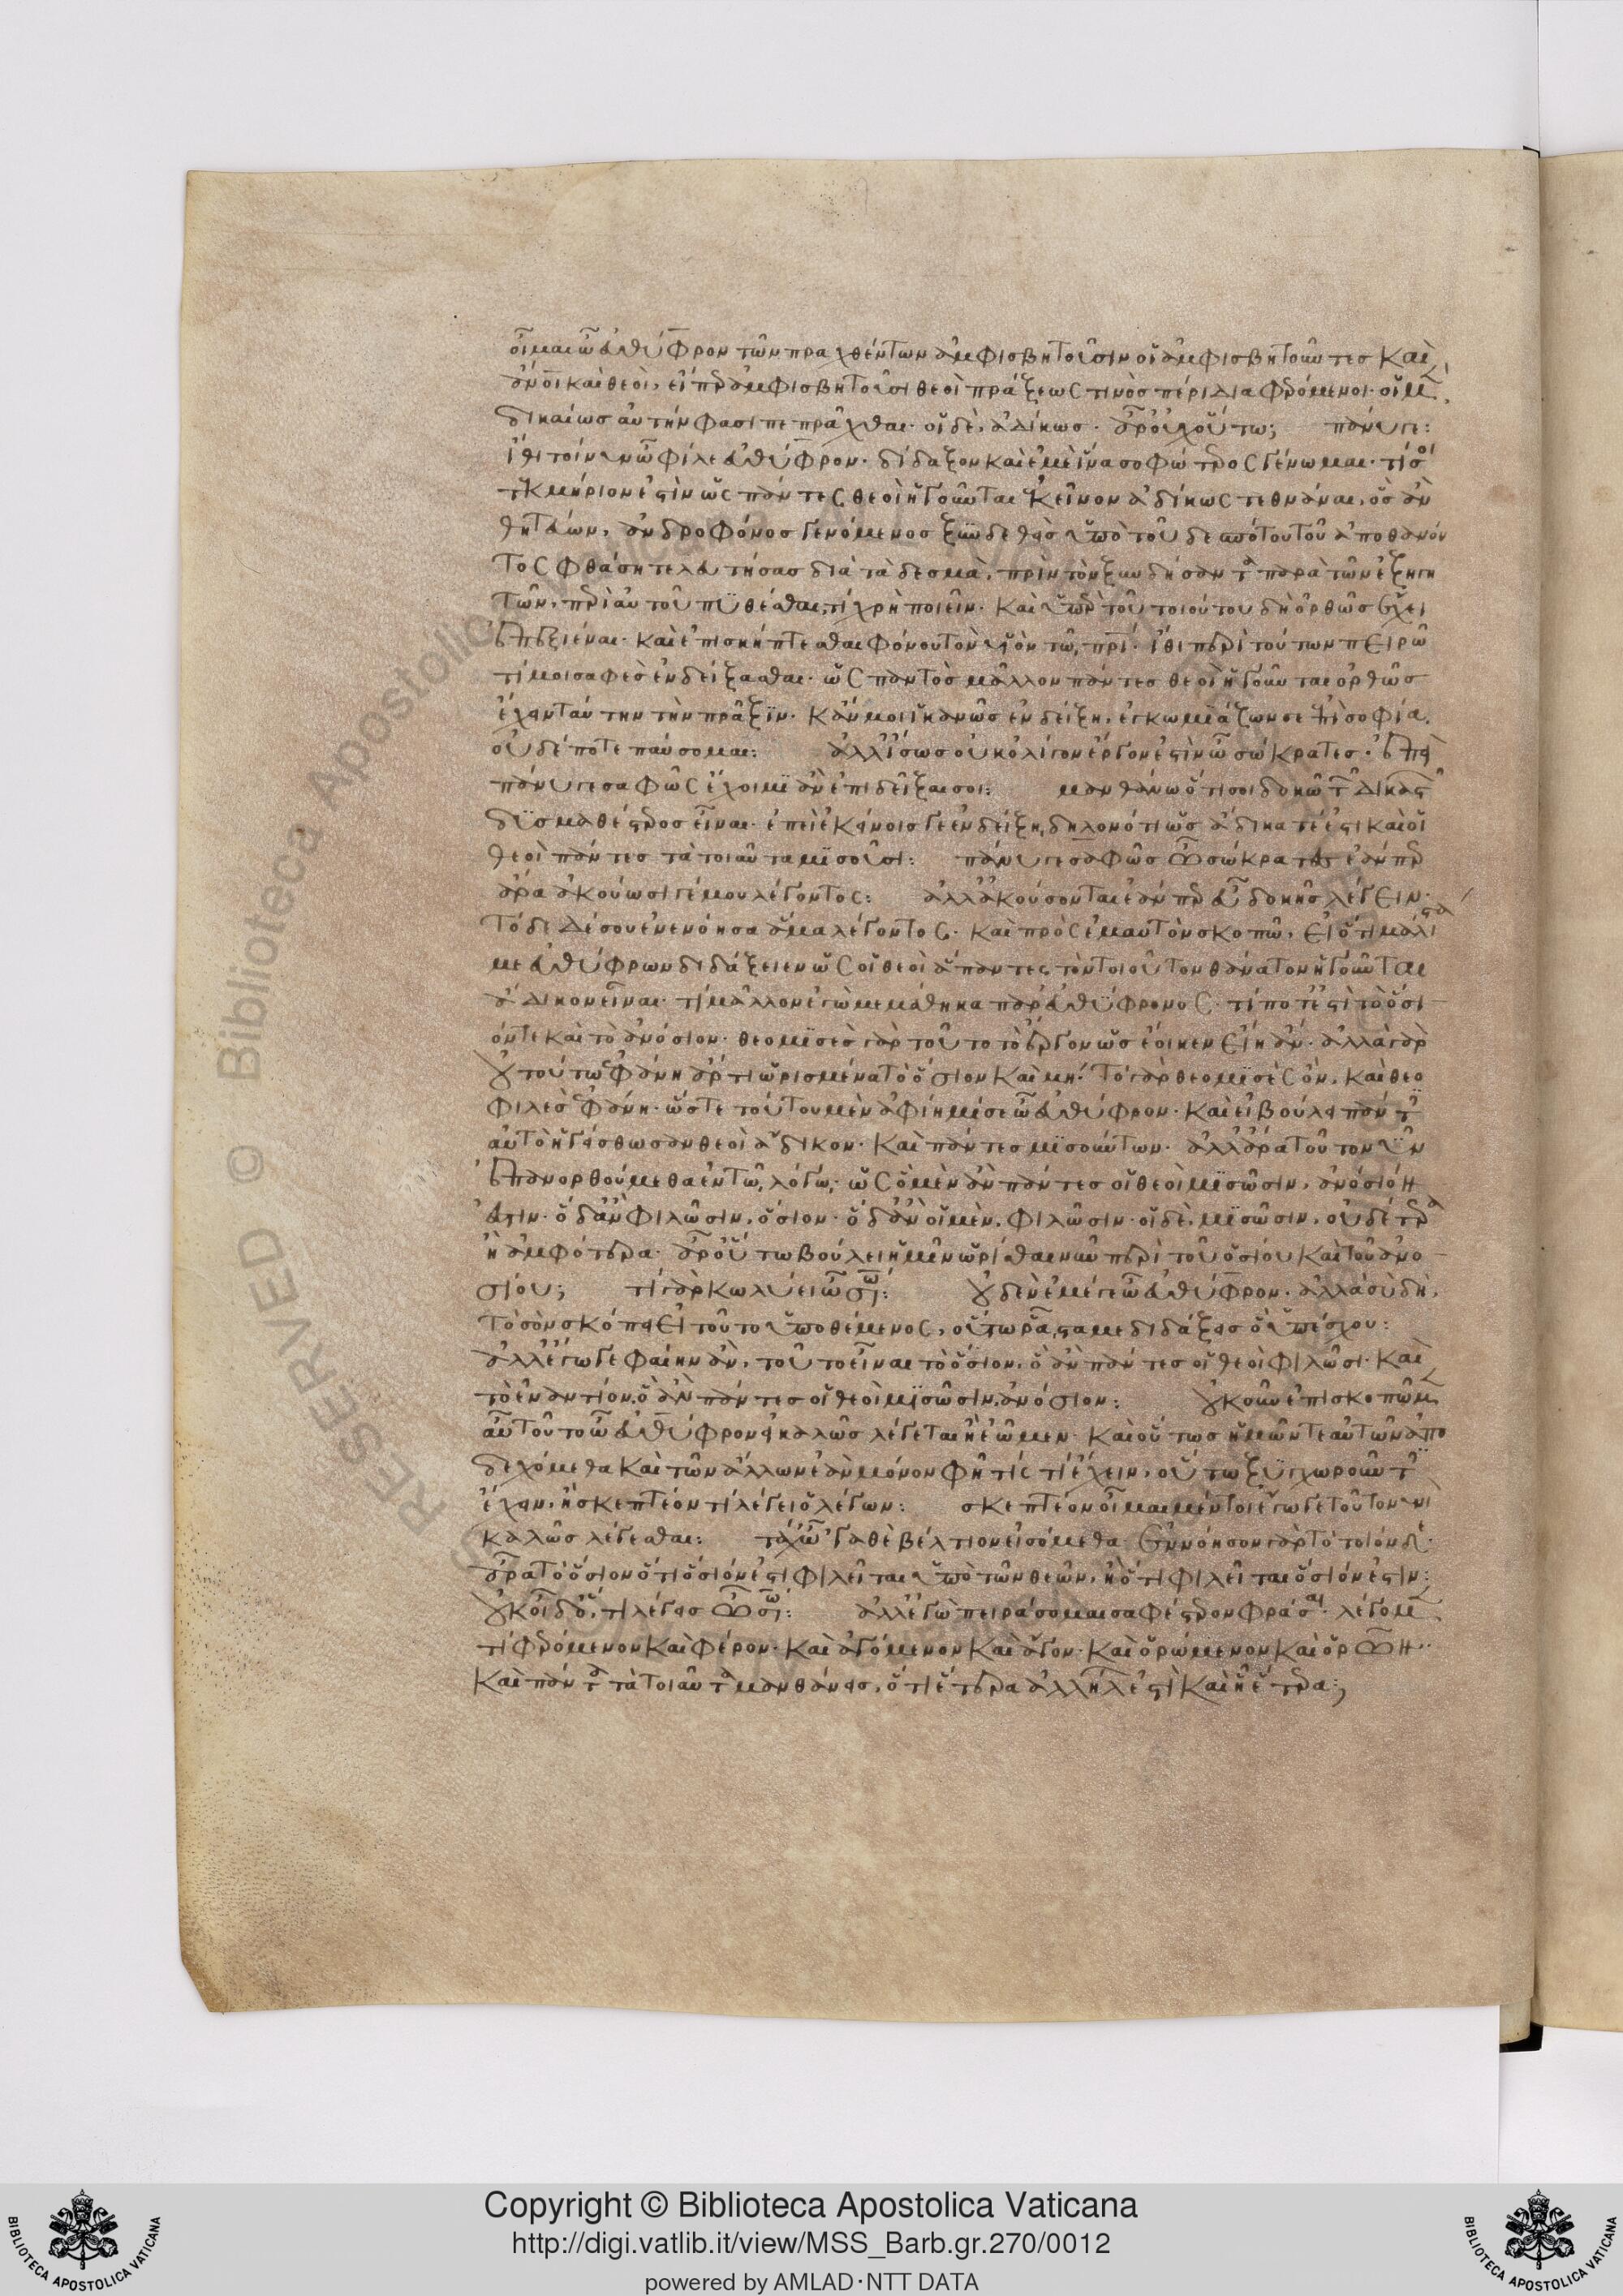 οἶμαι ὦ εὐθύφρον τῶν πραχθέντων ἀμφισβητοῦσιν οἱ ἀμφισβητοῦντες καὶ
ἄνοι καὶ θεοὶ, εἴπερ ἀμφισβητοῦσι θεοὶ πράξεως τινὸς πέρι διαφερόμενοι· οἱ μὲν
δικαίως αὐτήν φασι πεπρᾶχθαι· οἱ δὲ, ἀδίκως· ἆρ' οὐχ οὕτω; πάνυ γε:
ἴθι τοίνυν ὦ φίλε εὐθύφρον· δίδαξον καὶ ἐμὲ ἵνα σοφώτερος γένωμαι· τί σοι
τεκμήριόν ἐστιν ὡς πάντες θεοὶ ἡγοῦνται ἐκεῖνον ἀδίκως τεθνάναι, ὃς ἂν
θητεύων, ἀνδροφόνος γενόμενος ξυνδεθεὶς ὑπὸ τοῦ δεσπότου τοῦ ἀποθανόν
τος φθάσῃ τελευτήσας διὰ τὰ δεσμὰ, πρὶν τὸν ξυνδήσαντα παρὰ τῶν ἐξηγη
τῶν, περὶ αὐτοῦ πυθέσθαι, τί χρὴ ποιεῖν· καὶ ὑπὲρ τοῦ τοιούτου δὴ ὀρθῶς ἔχει
ἐπεξιέναι· καὶ ἐπισκήπτεσθαι φόνου τὸν υἱὸν τῷ πρί· ἴθι περὶ τούτων πειρῶ
τί μοι σαφὲς ἐνδείξασθαι· ὡς παντὸς μᾶλλον πάντες θεοὶ ἡγοῦνται ὀρθῶς
ἔχειν ταύτην τὴν πρᾶξιν· κἄν μοι ἱκανῶς ἐνδείξῃ, ἐγκωμιάζων σε ἐπὶ σοφίᾳ
οὐδέποτε παύσομαι: ἀλλ' ἴσως οὐκ ὀλίγον ἔργον ἐστὶν ὦ σώκρατες· ἐπεὶ
πάνυ γε σαφῶς ἔχοιμι ἂν ἐπιδεῖξαι σοι: μανθάνω ὅτι σοι δοκῶ τῶν δικαστῶν
δυσμαθέστερος εἶναι· ἐπεὶ ἐκείνοις γε ἐνδείξῃ, δηλονότι ὡς ἄδικά τέ ἐστι καὶ οἱ
θεοὶ πάντες τὰ τοιαῦτα μισοῦσι: πάνυ γε σαφῶς ὦ σώκρατες ἐάνπερ
ἄρα ἀκούωσί γέ μου λέγοντος: ἀλλ' ἀκούσονται ἐάνπερ εὖ δοκῇς λέγειν·
τόδε δέ σου ἐνενόησα ἅμα λέγοντος· καὶ πρὸς ἐμαυτὸν σκοπῶ, εἰ ὅτι μάλιστά
με εὐθύφρων διδάξειεν ὡς οἱ θεοὶ ἅπαντες τὸν τοιοῦτον θάνατον ἡγοῦνται
ἄδικον εἶναι· τί μᾶλλον ἐγὼ μεμάθηκα παρ' εὐθύφρονος· τί ποτ' ἐστὶ τὸ ὅσι
όν τε καὶ τὸ ἀνόσιον· θεομισὲς γὰρ τοῦτο τὸ ἔργον ὡς ἔοικεν εἴη ἄν· ἀλλὰ γὰρ
οὐ τούτῳ ἐφάνη ἄρτι ὡρισμένα τὸ ὅσιον καὶ μή· τὸ γὰρ θεομισὲς ὂν, καὶ θεο
φιλὲς ἐφάνη· ὥστε τούτου μὲν ἀφίημί σε ὦ εὐθύφρον· καὶ εἰ βούλει πάντες
αὐτὸ ἡγείσθωσαν θεοὶ ἄδικον· καὶ πάντες μισούντων· ἀλλ' ἄρα τοῦτο νῦν
ἐπανορθούμεθα ἐν τῷ λόγῳ, ὡς ὃ μὲν ἂν πάντες οἱ θεοὶ μισῶσιν, ἀνόσιόν
ἐστιν· ὃ δ' ἂν φιλῶσιν, ὅσιον· ὃ δ' ἂν οἱ μὲν, φιλῶσιν· οἱ δὲ, μισῶσιν, οὐδέτερα
ἢ ἀμφότερα· ἆρ' οὕτω βούλει ἡμῖν ὡρίσθαι νῦν περὶ τοῦ ὁσίου καὶ τοῦ ἀνο
σίου; τί γὰρ κωλύει ὦ σώ: οὐδὲν ἐμέ γε ὦ εὐθύφρον· ἀλλὰ σὺ δὴ,
τὸ σὸν σκόπει εἰ τοῦτο ὑποθέμενος, οὕτω ῥᾷστά με διδάξεις ὃ ὑπέσχου:
ἀλλ' ἔγωγε φαίην ἂν, τοῦτο εἶναι τὸ ὅσιον, ὃ ἂν πάντες οἱ θεοὶ φιλῶσι· καὶ
τὸ ἐναντίον, ὃ ἂν πάντες οἱ θεοὶ μισῶσιν, ἀνόσιον: οὐκοῦν ἐπισκοπῶμεν
αὖ τοῦτο ὦ εὐθύφρον εἰ καλῶς λέγεται ἢ ἐῶμεν· καὶ οὕτως ἡμῶν τε αὐτῶν ἀπο
δεχόμεθα καὶ τῶν ἄλλων ἐὰν μόνον φῇ τίς τί ἔχειν, οὕτω ξυγχωροῦντες
ἔχειν, ἢ σκεπτέον τί λέγει ὁ λέγων: σκεπτέον οἶμαι μέντοι ἔγωγε τοῦτο νυνὶ
καλῶς λέγεσθαι: τάχ' ὦ 'γαθὲ βέλτιον εἰσόμεθα· ἐννόησον γὰρ τὸ τοιόνδε·
ἆρα τὸ ὅσιον ὅτι ὅσιόν ἐστι φιλεῖται ὑπὸ τῶν θεῶν, ἢ ὅτι φιλεῖται ὅσιόν ἐστιν:
οὐκ οἶδ' ὅ,τι λέγεις ὦ σώ: ἀλλ' ἐγὼ πειράσομαι σαφέστερον φράσαι· λέγομέν
τι φερόμενον καὶ φέρον· καὶ ἀγόμενον καὶ ἄγον· καὶ ὁρώμενον καὶ ὁρῶν·
καὶ πάντα τὰ τοιαῦτα μανθάνεις, ὅτι ἕτερα ἀλλήλων ἐστὶ καὶ ᾗ ἕτερα;
Copyright © Biblioteca Apostolica Vaticana
http://digi.vatlib.it/view/MSS_Barb.gr.270/0012
powered by AMLAD·NTT DATA